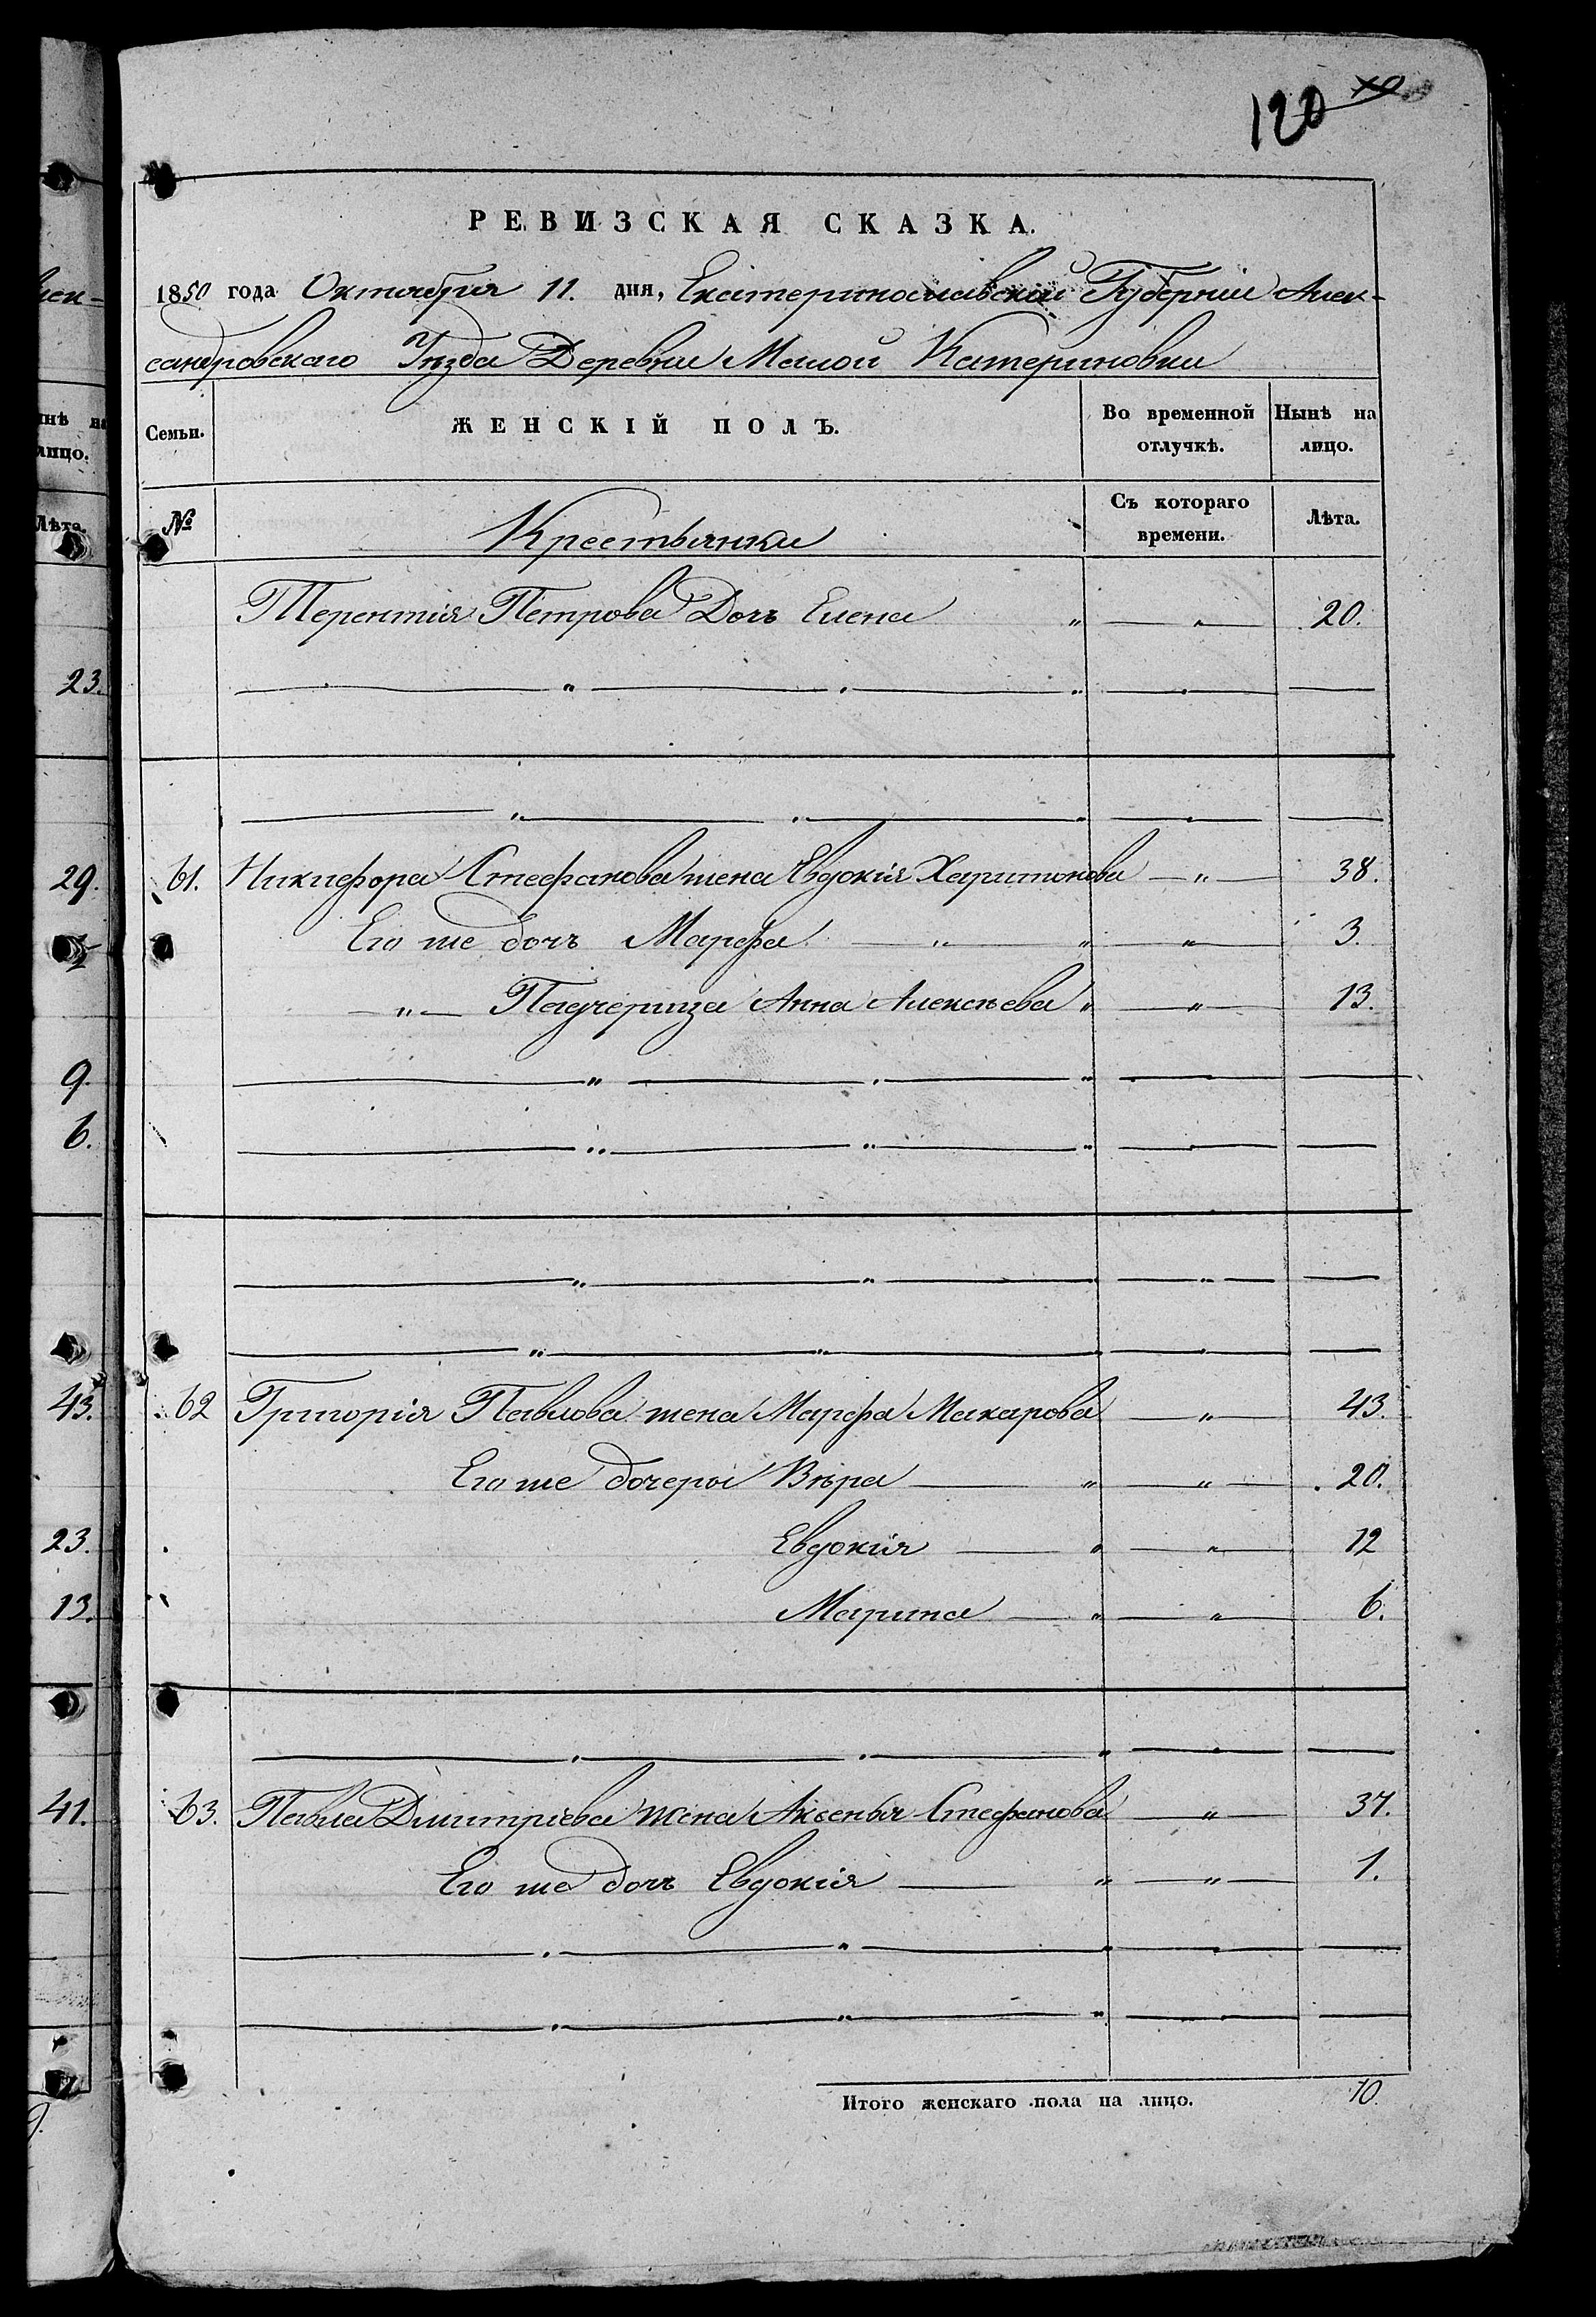 120
РЕВИЗСКАЯ СКАЗКА.
1850 года Октября 11. дня, Екатеринославской Губерніи Алек-
сандровскаго Уѣзда Деревни Малой Катериновки
Семьи. ЖЕНСКІЙ ПОЛЪ. Во временной отлучкѣ. Нынѣ на лицо.
№ Крестьянки Съ котораго времени. Лѣта.
Терентія Петрова Дочь Елена " — " — 20.
61. Никифора Стефанова жена Евдокія Харитонова — " — 38.
Его же дочь Марфа — " — " — " — 3.
— " — Падчерица Анна Алексѣева " — " — 13.
62 Григорія Павлова жена Марфа Макарова — " — 43.
Его же дочери Вѣра — " — " — 20.
Евдокія — " — " — 12
Марина — " — " — 6.
63. Павла Дмитріева жена Аксенья Стефанова — " — 37.
Его же дочь Евдокія — " — " — 1.
Итого женскаго пола на лицо. 10.
лек-
нѣ на
лицо.
Лѣта.
23.
29.
9.
6.
43.
23.
13.
41.